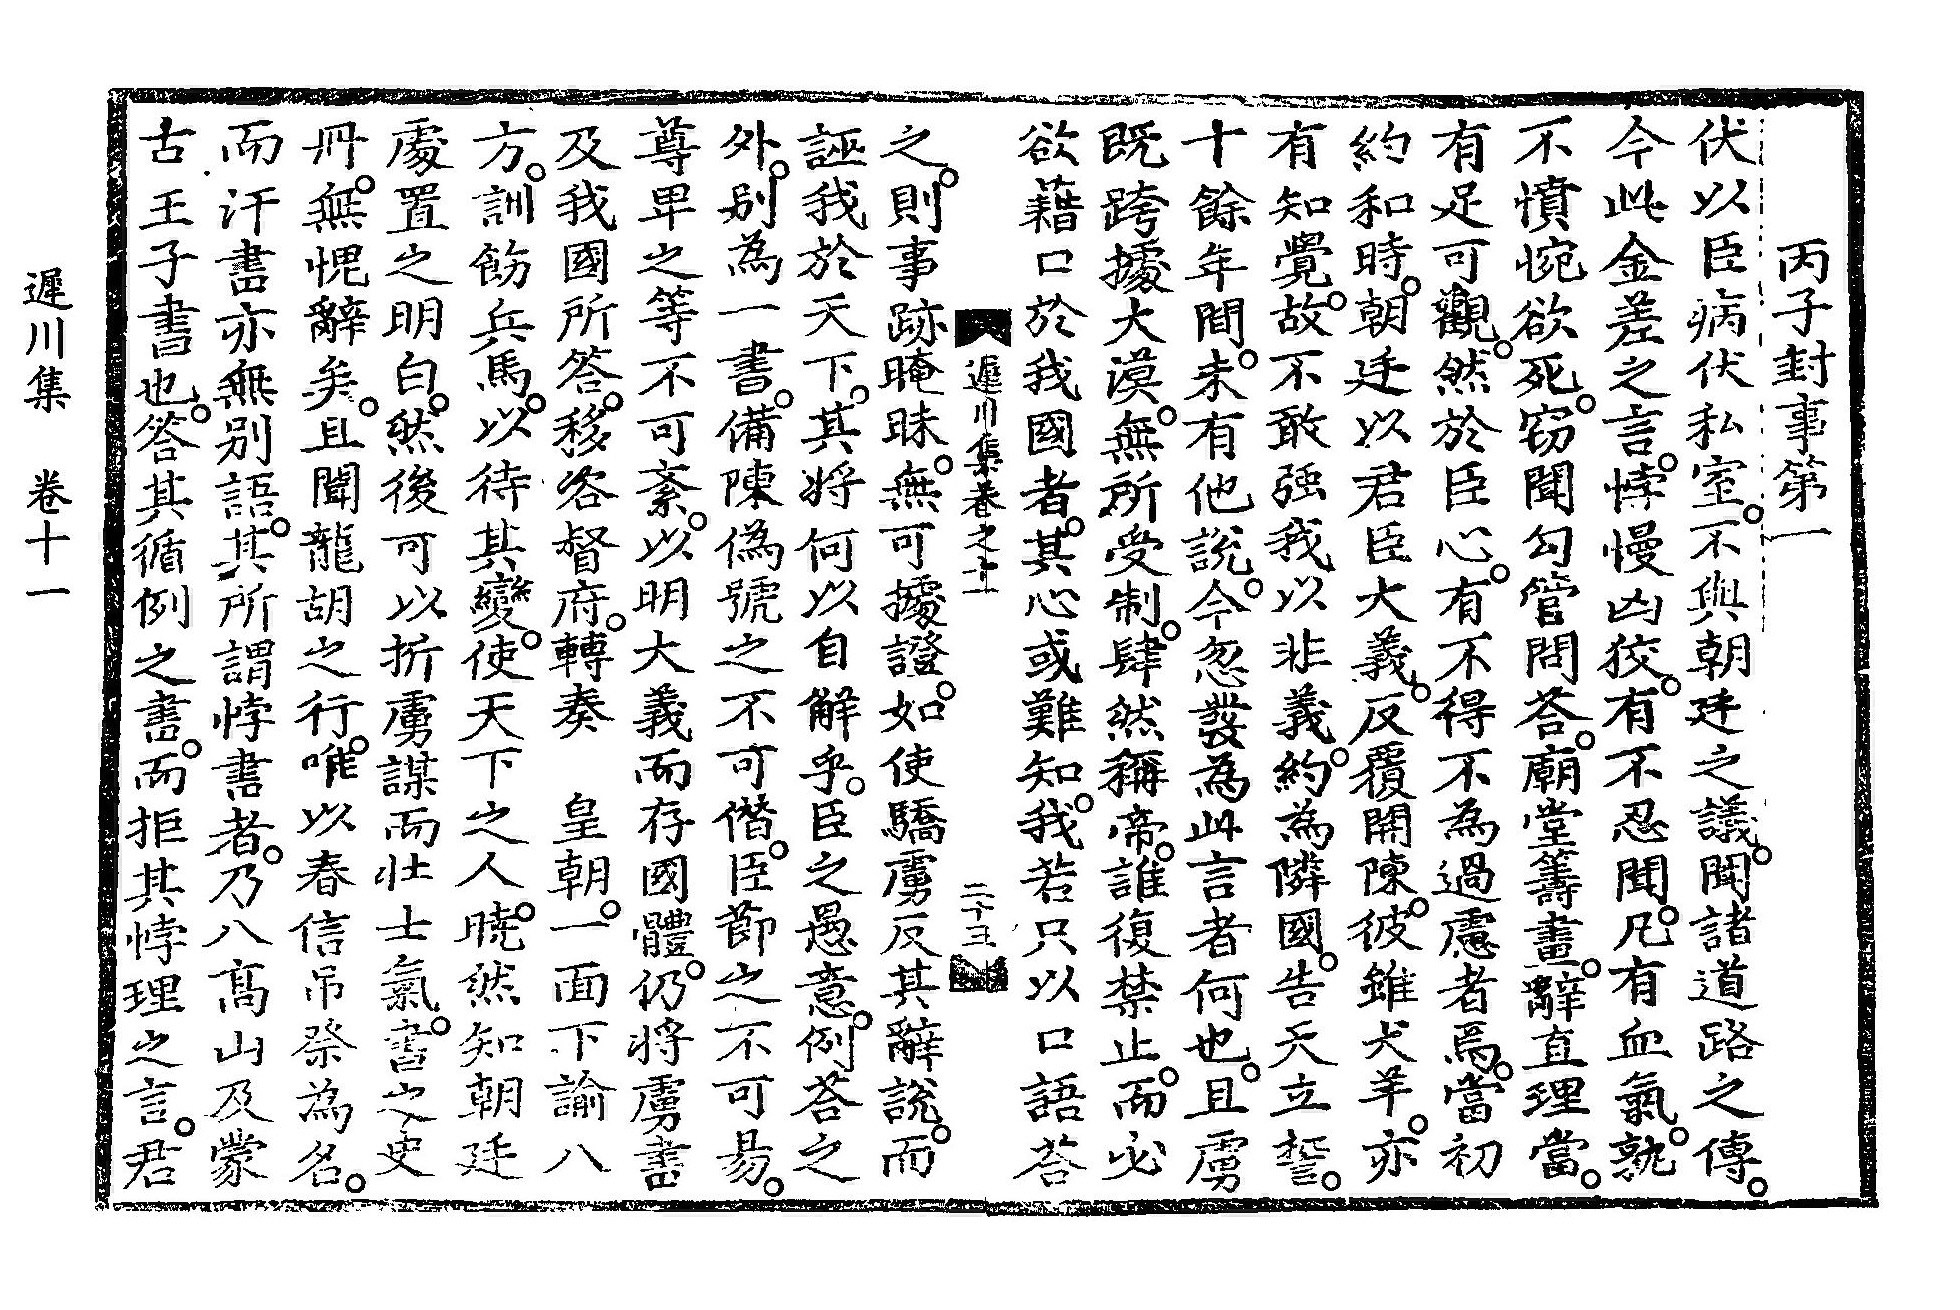 丙子封事第一
伏以臣病伏私室。不與朝廷之議。聞諸道路之傳。
今此金差之言。悖慢凶狡。有不忍聞。凡有血氣。孰
不憤惋欲死。窃聞勾管問答。廟堂籌畫。辭直理當。
有足可觀。然於臣心。有不得不為過慮者焉。當初
約和時。朝廷以君臣大義。反覆開陳。彼雖犬羊。亦
有知覺。故不敢強我以非義。約為隣國。告天立誓。
十餘年間。未有他說。今忽發為此言者何也。且虜
既跨據大漠。無所受制。肆然稱帝。誰復禁止。而必
欲藉口於我國者。其心或難知。我若只以口語荅
遲川集卷之十一
二十五
之。則事跡晻昧。無可據證。如使驕虜反其辭說。而
誣我於天下。其將何以自解乎。臣之愚意。例荅之
外。別為一書。備陳偽號之不可僭。臣節之不可易。
尊卑之等不可紊。以明大義而存國體。仍將虜書
及我國所答。移咨督府。轉奏 皇朝。一面下諭八
方。訓飭兵馬。以待其變。使天下之人。曉然知朝廷
處置之明白。然後可以折虜謀而壯士氣。書之史
冊。無愧辭矣。且聞龍胡之行。唯以春信吊祭為名。
而汗書亦無別語。其所謂悖書者。乃八高山及蒙
古王子書也。答其循例之書。而拒其悖理之言。君
遲川集 卷十一